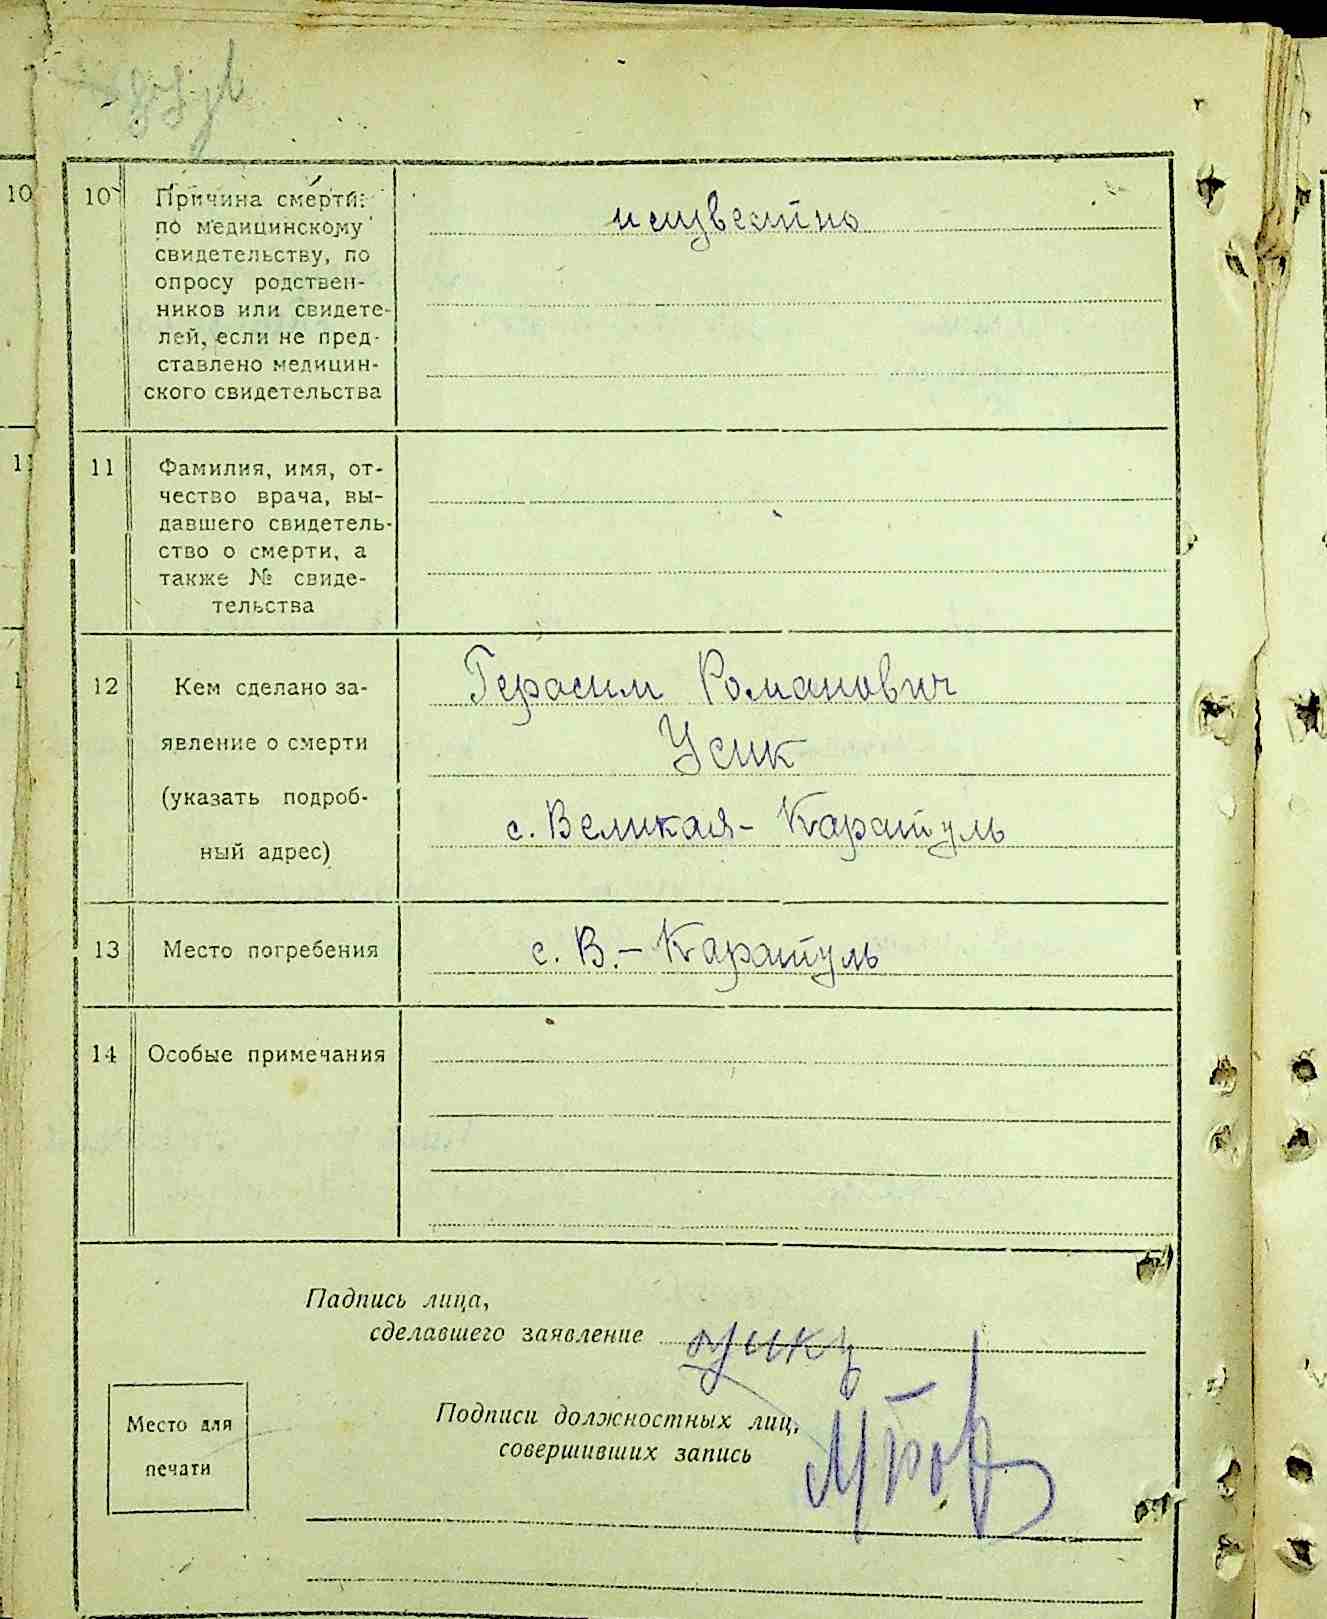 10
10
Причина смерти:
по медицинскому
свидетельству, по
опросу родствен-
ников или свидете-
лей, если не пред-
ставлено медицин-
ского свидетельства
неизвестно
11
Фамилия, имя, от-
чество врача, вы-
давшего свидетель-
ство о смерти, а
также № свиде-
тельства
12
Кем сделано за-
явление о смерти
(указать подроб-
ный адрес)
Герасим Романович
Усик
с. Великая - Каратуль
13
Место погребения
с. В. - Каратуль
14
Особые примечания
Падпись лица,
сделавшего заявление
Место для
печати
Подписи должностных лиц,
совершивших запись